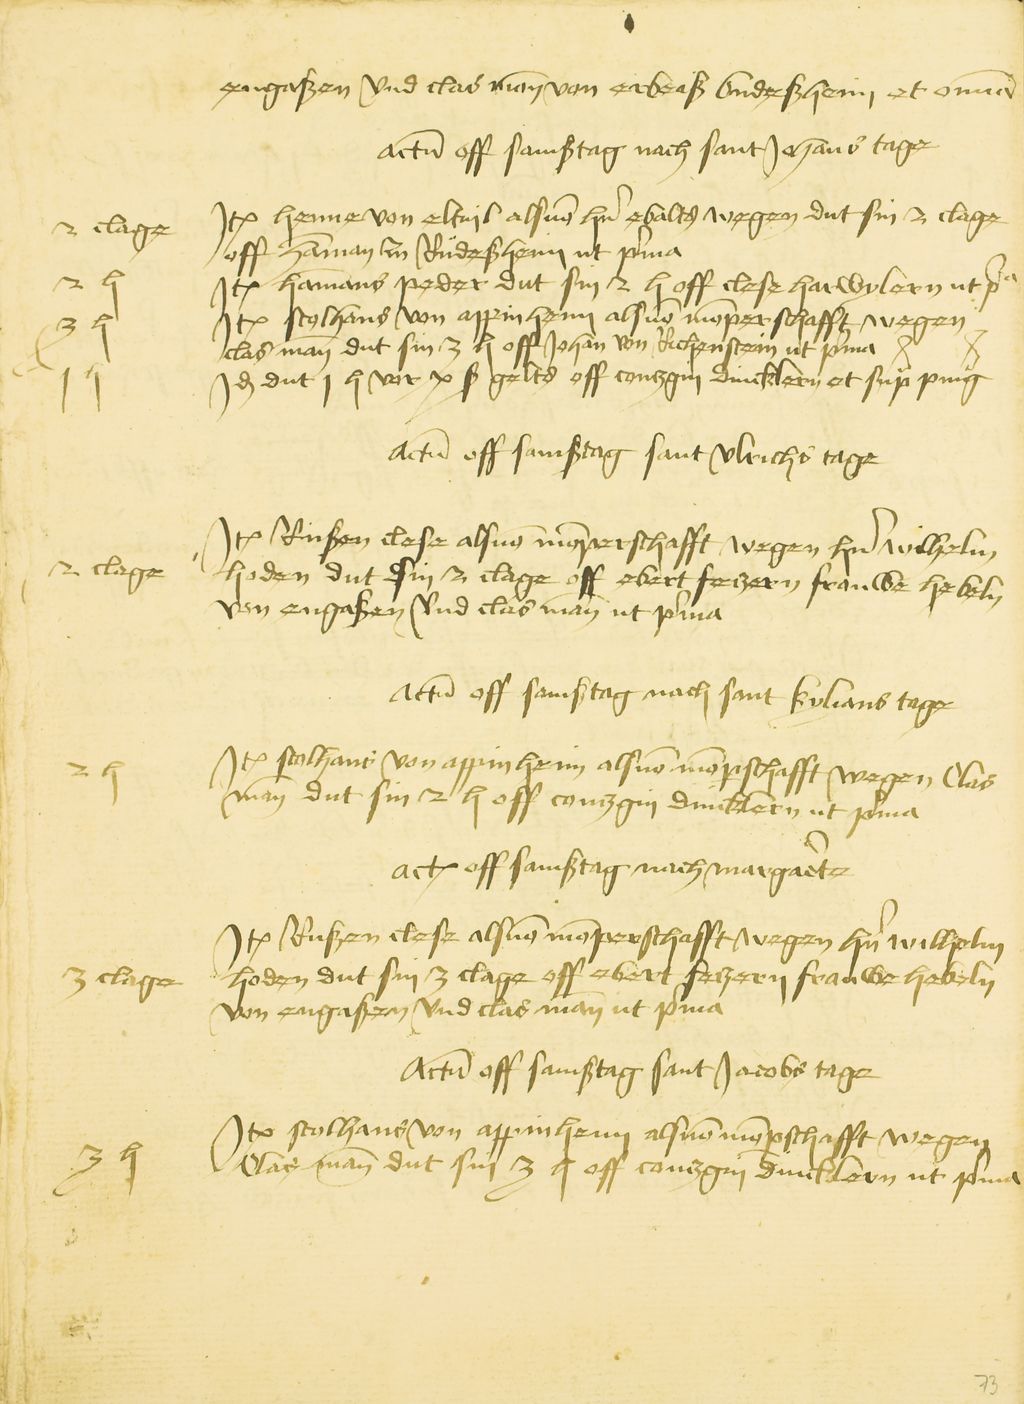 engaßen vnd clas man von erbeß budeßheim et omnia
Actu off samßtag nach sant Johans tage
2 clage
Itx henne von eltuil alsuo hn ebalts wegen dut sin 2 clage
off haman in Rudeßheim ut prima
2 h
Itx hamans peder dut sin 2 h off clese harwylern ut pa
3 h
Itx stolhans von appinheim alsuo moperschafft wegen
clas man dut sin 3 h off Johan von Richenstein ut prima
1 h
Id dut 1 h vor x ß gelts off contzgin dincklern et sup pnig
Actu off samßtag sant vlrichs tage
Itx Rußen clese alsuo moperschafft wegen hn wilhelm
2 clage
hoden dut sin 2 clage off ebert fetzern frauwe hebeln
von engaßen vnd clas man ut prima
Actu off samßtag nach sant kylians tage
2 h
Itx stolhans von appinheim alsuo mopschafft wegen Clas
man dut sin 2 h off contzgin dincklern ut prima
actx off samßtag nach margarete
Itx Rußen clese alsuo moperschafft wegen hn wilhelm
3 clage
hoden dut sin 3 clage off ebert fetzern frauwe hebeln
von engaßen vnd clas man ut prima
Actu off samßtag sant Jacobs tage
Itx stolhans von appinheim alsuo mopschafft wegen
3 h
Clas man dut sin 3 h off contzgin dincklern ut prima
73